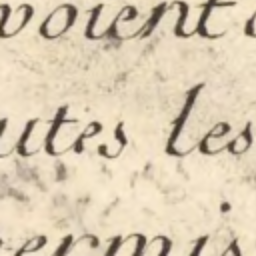 voient
utes les
ermis